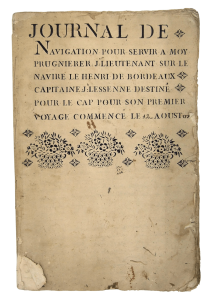 JOURNAL DE
NAVIGATION POUR SERVIR A MOY
PRUGNIERER J. LIEUTENANT SUR LE
NAVIRE LE HENRI DE BORDEAUX
CAPITAINE J. LESSENNE DESTINÉ
POUR LE CAP POUR SON PREMIER
VOYAGE COMMENCE LE AOUST